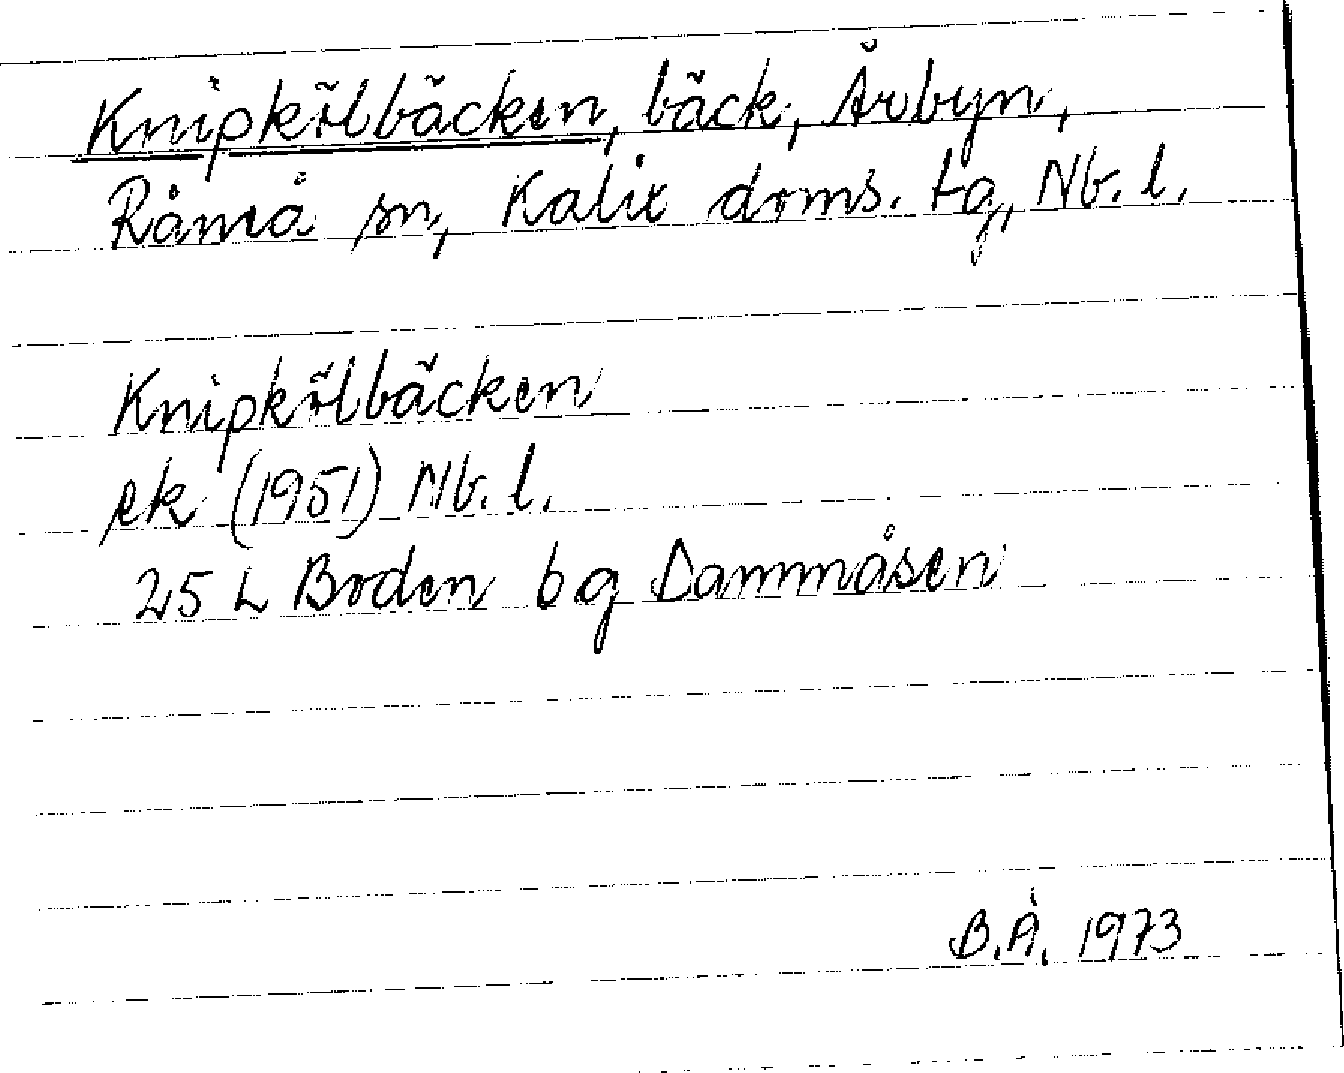 Knipkölbäcken, bäck, Ärbyn,
Råneå sn, Kalix doms. tg, Nb. l.
Knipkölbäcken
ek (1951) Nb. l.
25 L Boden bg Dammåsen
B.Å. 1973